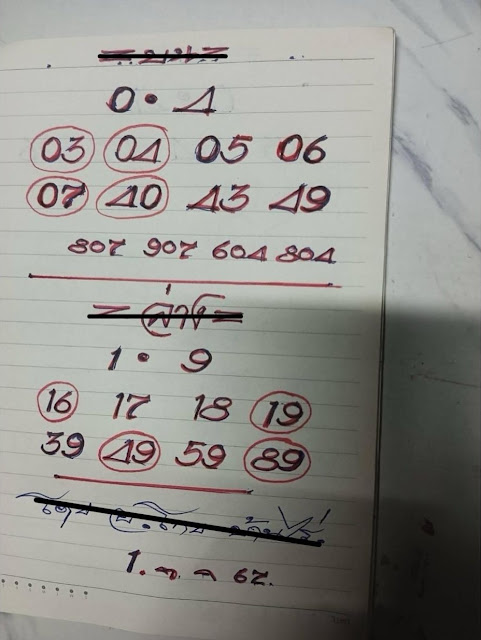 0 • 4
03 04 05 06
07 40 43 49
807 907 604 804
ล่าง
1 • 9
16 17 18 19
39 49 59 89